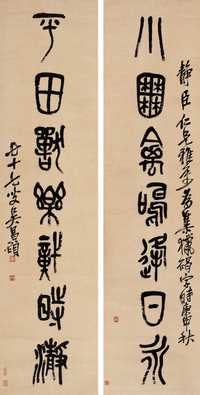 小囿禽鳴逢日永
平田樂時
靜臣仁兄雅屬為集獵碣字時庚申秋
七十七叟吳昌碩